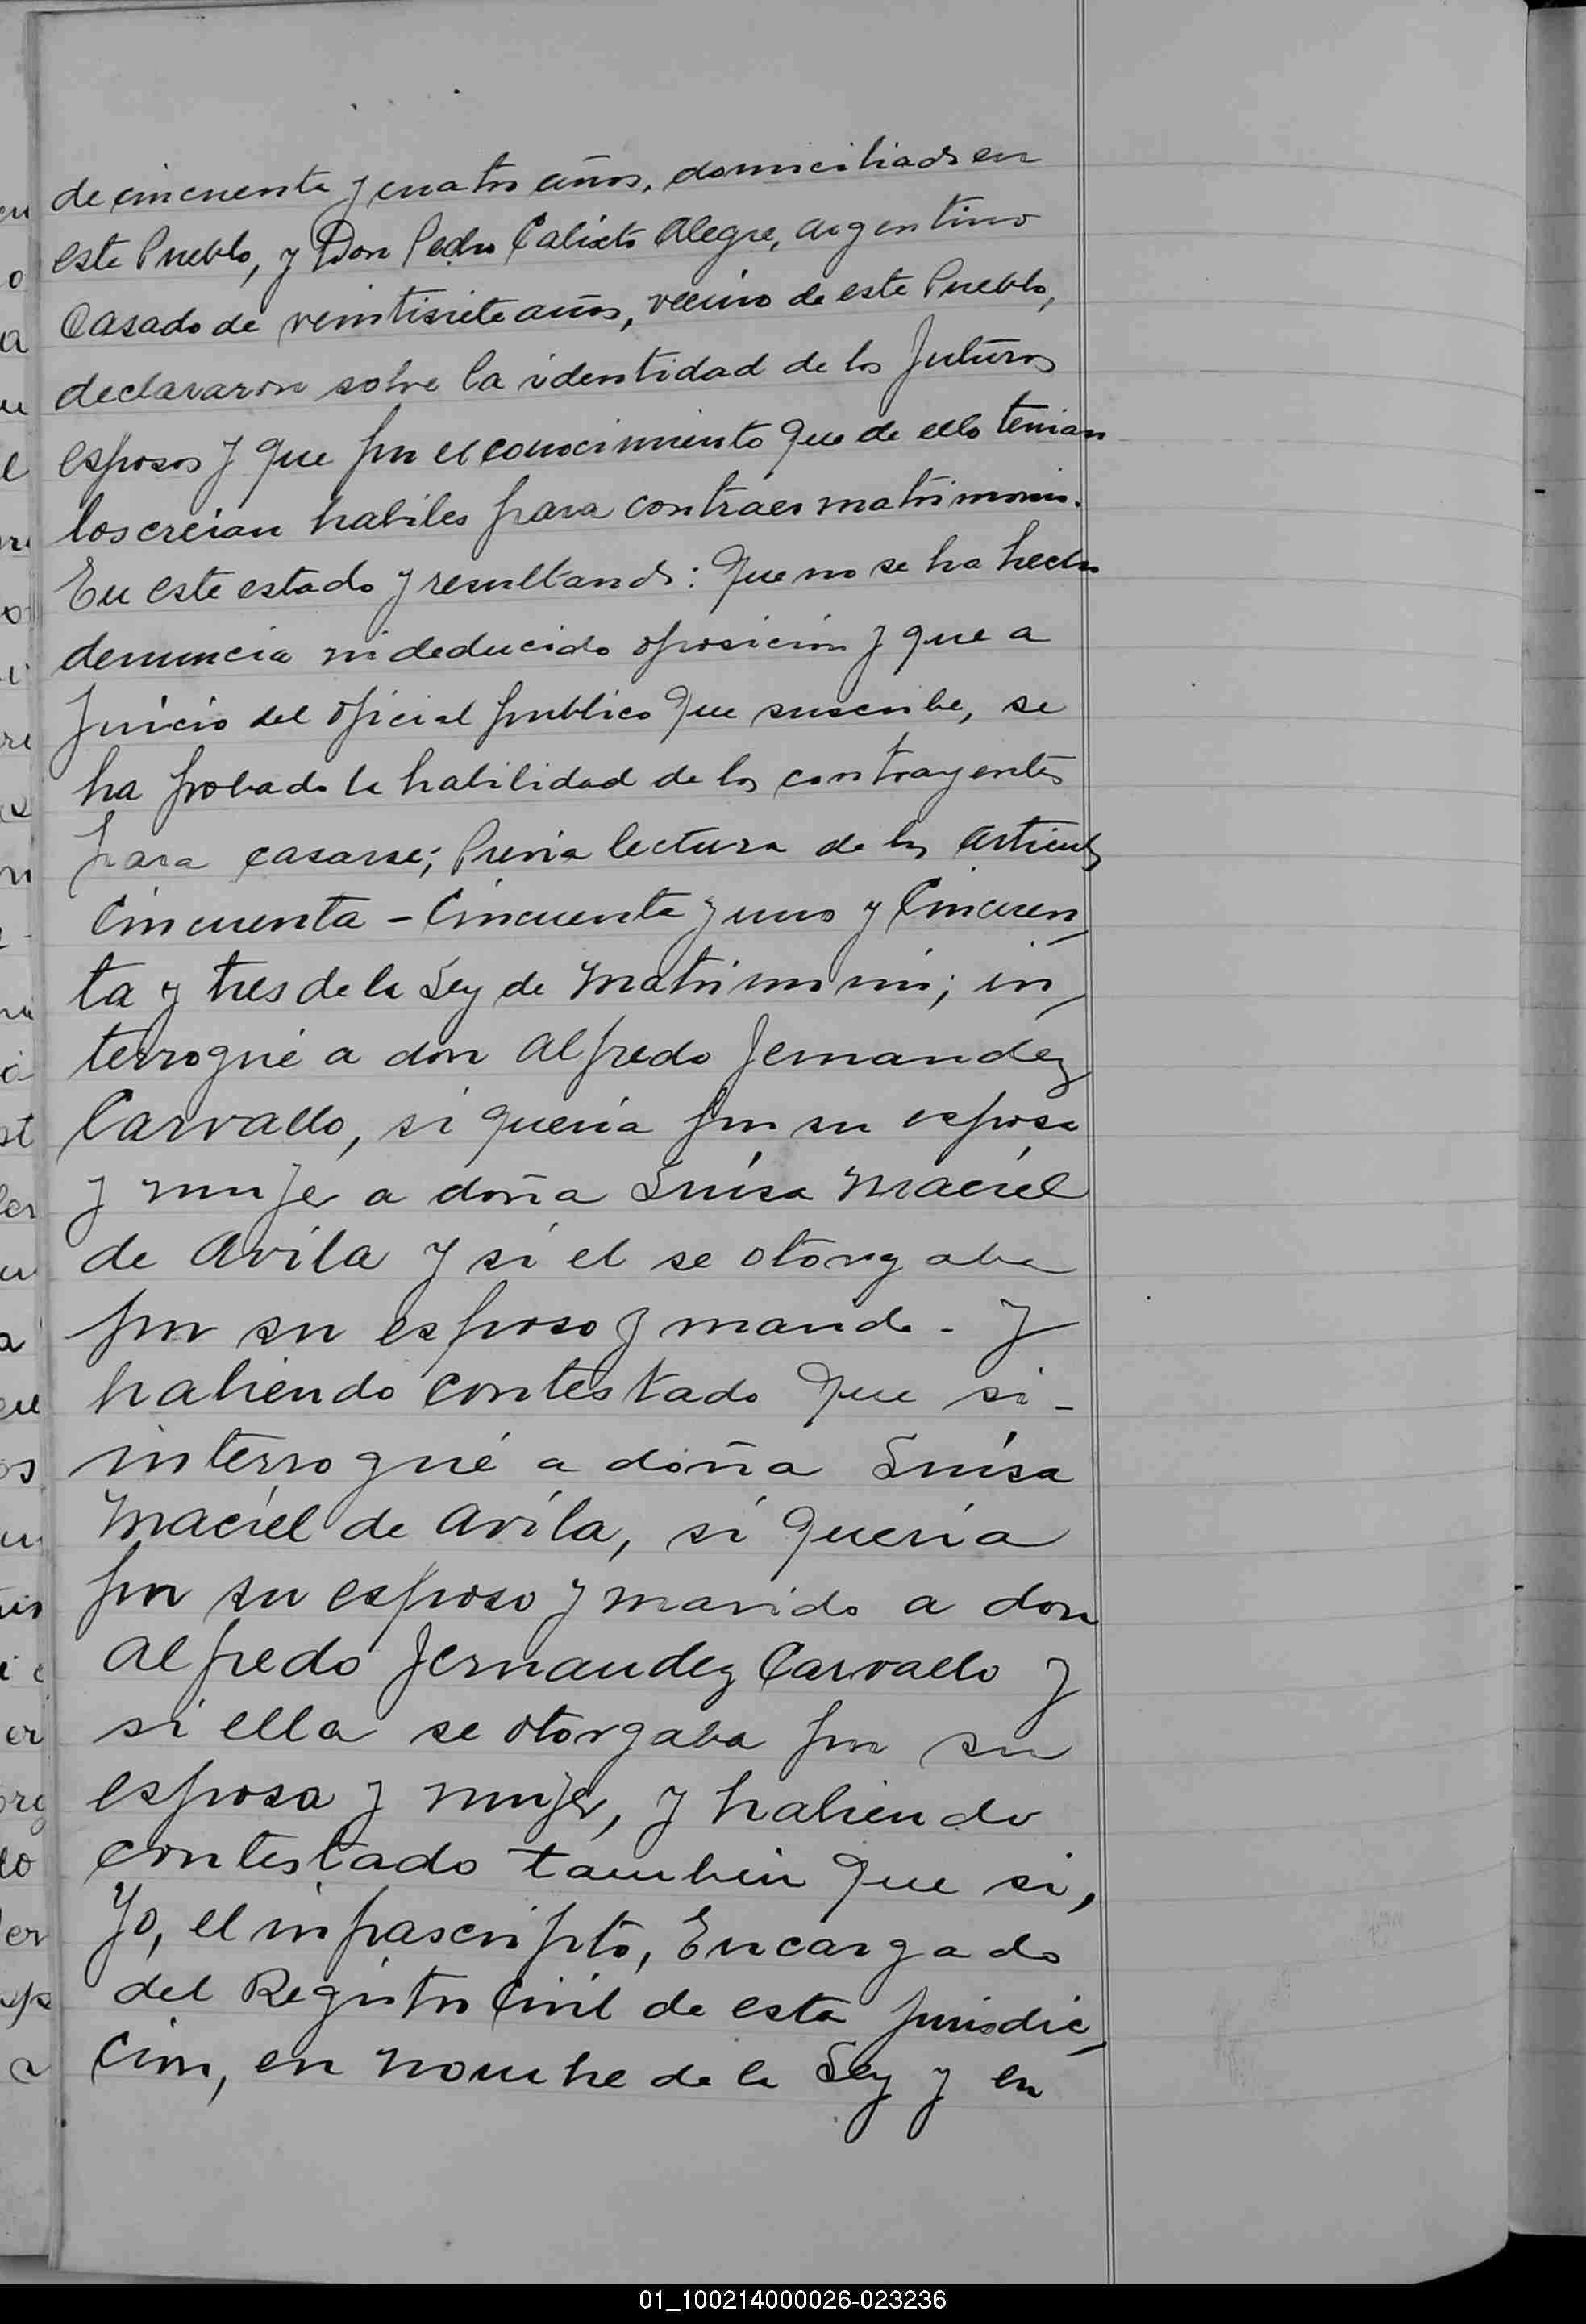 de cincuenta y cuatro años, domiciliado en
este Pueblo, y Don Pedro Calixto Alegre, argentino
Casado de veintisiete años, vecino de este Pueblo,
declararon sobre la identidad de los futuros
esposos y que por el conocimiento que de ello tenian
los creian habiles para contraer matrimonio.
En este estado y resultando: Que no se ha hecho
denuncia ni deducido oposición y que a
juicio del oficial publico que suscribe, se
ha probado la habilidad de los contrayentes
para casarse; Previa lectura de los articulos
Cincuenta - Cincuenta y uno y Cincuen
ta y tres de la Ley de Matrimonio; in
terrogué a don Alfredo Fernandez
Carvallo, si queria por su esposa
y mujer a doña Luisa Maciel
de Avila y si el se otorgaba
por su esposo y marido - y
habiendo contestado que si -
interrogué a doña Luisa
Maciel de Avila, si queria
por su esposo y marido a don
Alfredo Fernandez Carvallo y
si ella se otorgaba por su
esposa y mujer, y habiendo
contestado tambien que si,
Yo, el infrascripto, Encargado
del Registro Civil de esta jurisdic
cion, en nombre de la Ley y en
01_100214000026-023236